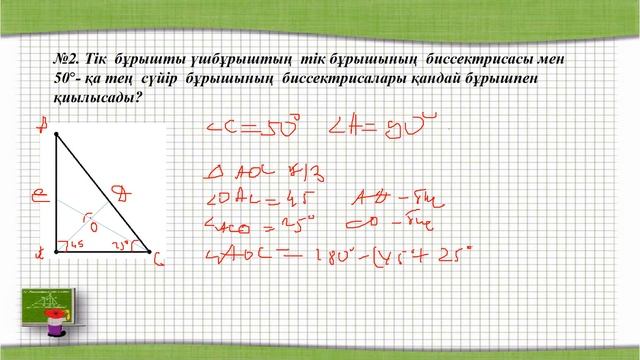 №2. Тік бұрышты үшбұрыштың тік бұрышының биссектрисасы мен
50°- қа тең сүйір бұрышының биссектрисалары қандай бұрышпен
қиылысады?
∠C=50° ∠A=90°
Δ AOC
∠OAC=45 AD - бис
∠ACO=25° CO - бис
∠AOC= 180°-(45°+25°
D
O
45 25°